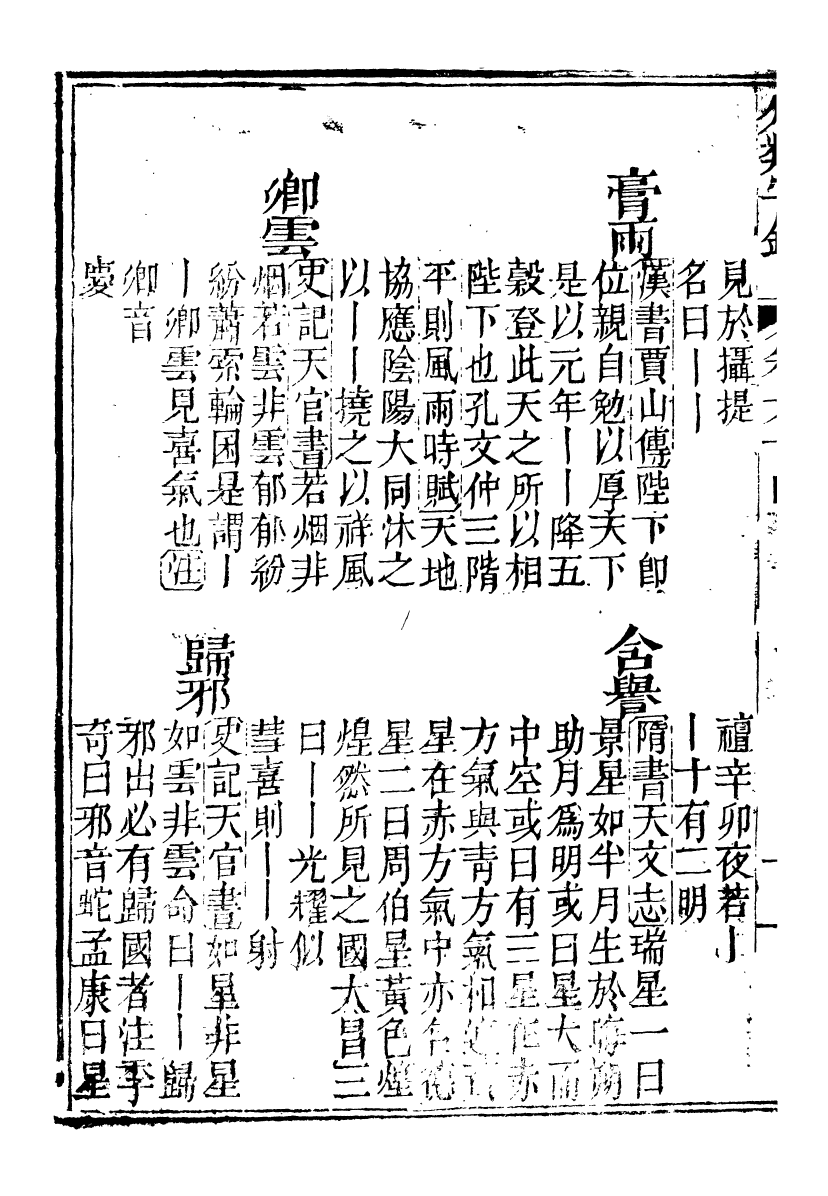 見於攝提
名曰丨丨
膏雨
漢書賈山傳陛下即
位親自勉以厚天下
是以元年丨丨降五
穀登此天之所以相
陛下也孔文仲三階
平則風雨時賦天地
協應陰陽大同休之
以丨丨撓之以祥風
卿雲
史記天官書若烟非
烟若雲非雲郁郁紛
紛蕭索輪囷是謂丨
丨卿雲見喜氣也注
卿音
慶
禋辛卯夜若丨
丨十有二明
含譽
隋書天文志瑞星一曰
景星如半月生於晦朔
助月爲明或曰星大而
中空或曰有三星在赤
方氣與青方氣相連黃
星在赤方氣中亦名德
星二曰周伯星黃色煌
煌然所見之國大昌三
曰丨丨光耀似
彗喜則丨丨射
歸邪
史記天官書如星非星
如雲非雲命曰丨丨歸
邪出必有歸國者注李
奇曰邪音蛇孟康曰星